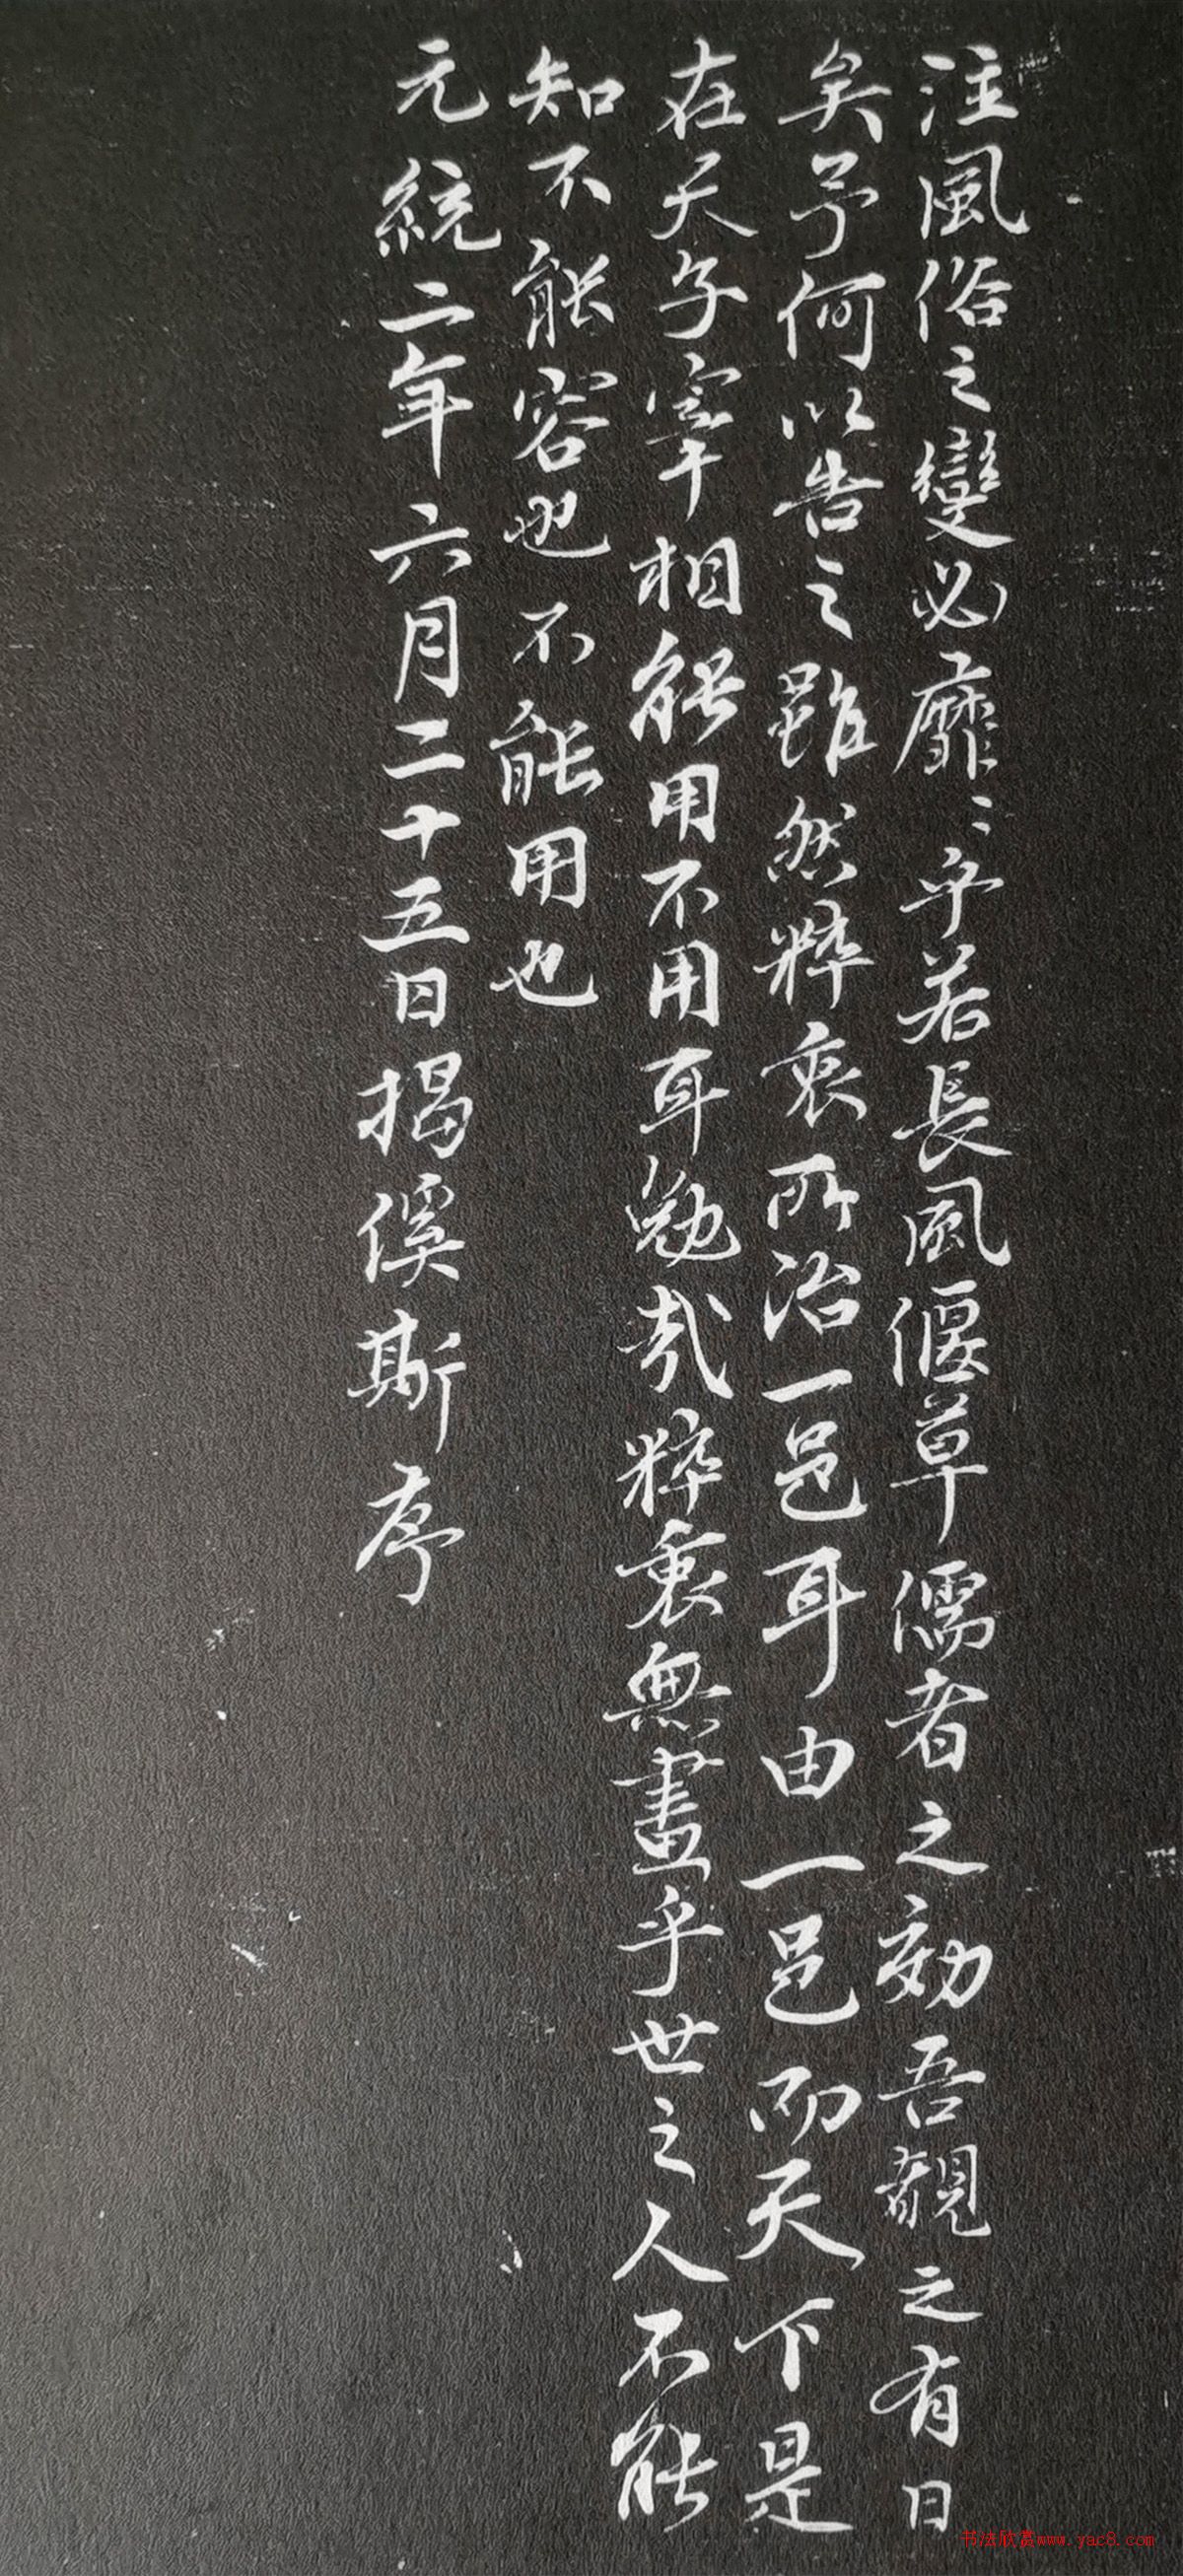 注風俗之變必靡〻乎若長風偃草儒者之効吾覩之有日
矣予何以告之雖然粹衷所治一邑耳由一邑而天下是
在天子宰相能用不用耳勉哉粹衷無畫乎世之人不能
知不能容也不能用也
元統二年六月二十五日揭傒斯序
书法欣赏www.yac8.com